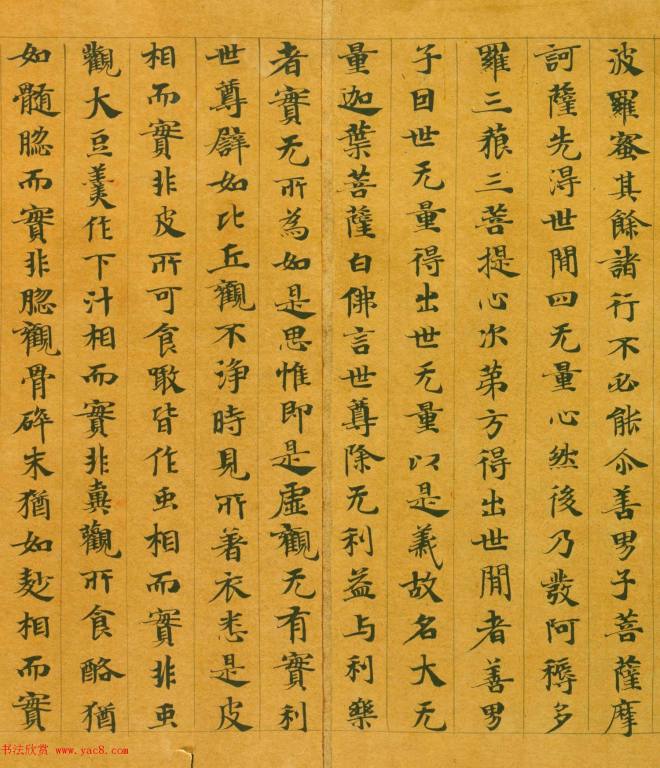 波羅蜜其餘諸行不必能尒善男子菩薩摩
訶薩先得世間四无量心然後乃發阿耨多
羅三藐三菩提心次第方得出世間者善男
子因世无量得出世无量以是義故名大无
量迦葉菩薩白佛言世尊除无利益与利樂
者實无所為如是思惟即是虛觀无有實利
世尊譬如比丘觀不淨時見所著衣悉是皮
相而實非皮所可食噉皆作虫相而實非虫
觀大豆羹作下汁相而實非糞觀所食酪猶
如髓𦠆而實非𦠆觀骨碎末猶如麨相而實
书法欣赏 www.yac8.com